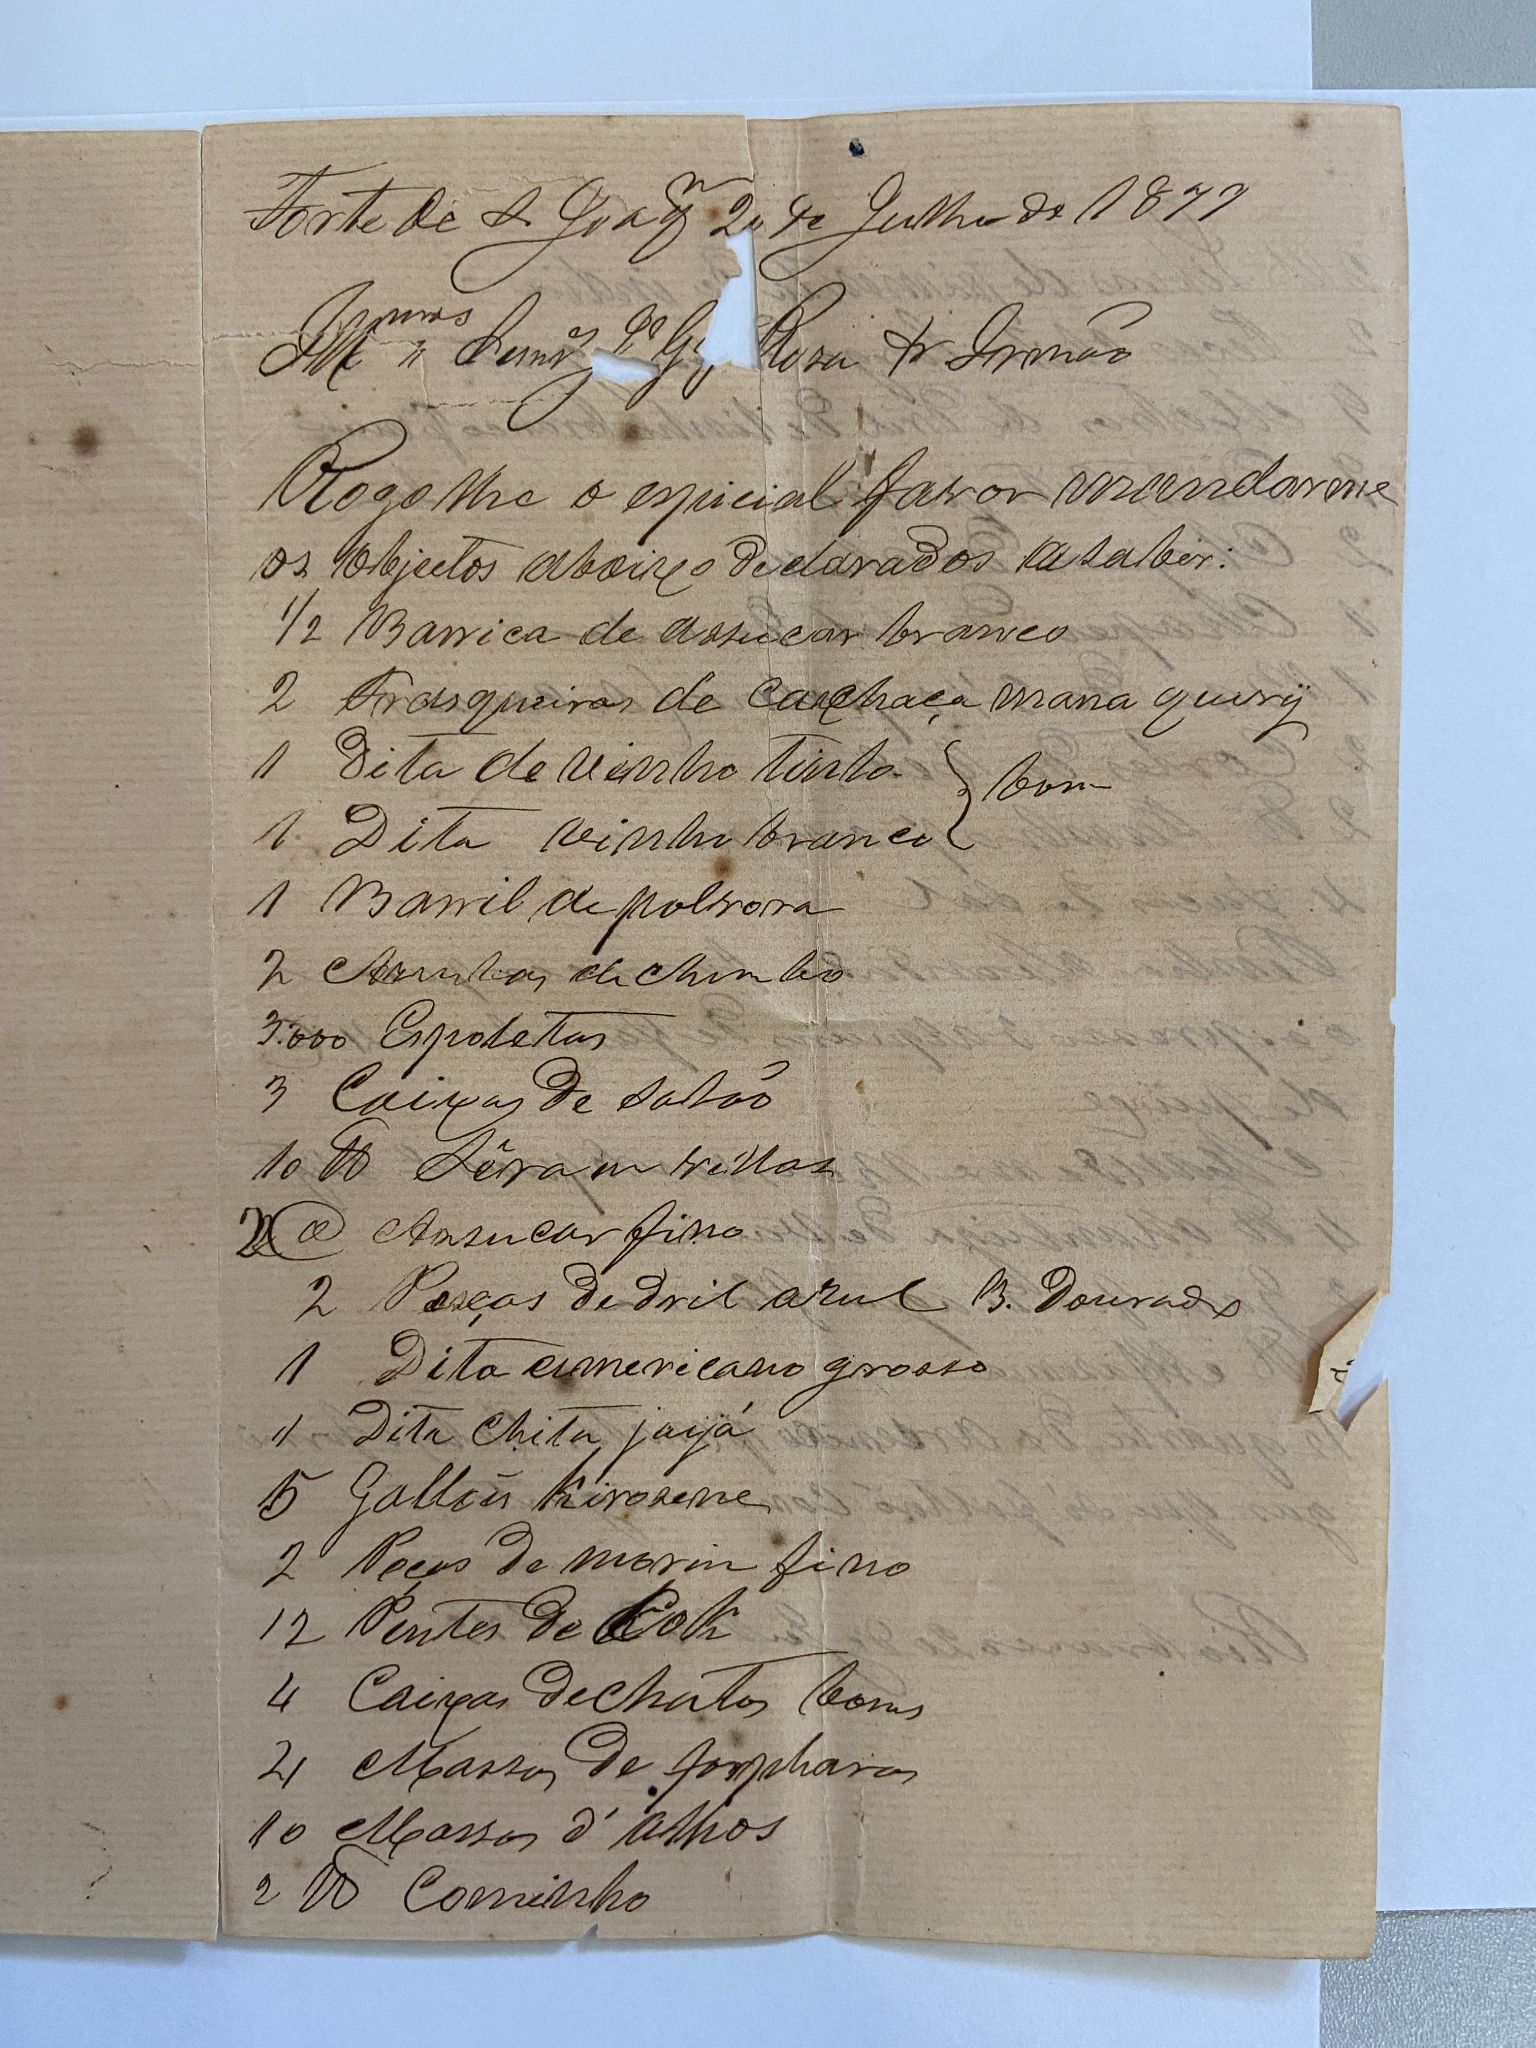 Forte de S. Joaqm 20 de Julho de 1877
Illmos Senrs Rosa & Irmão
Rogo lhe o espicial favor mandarme
os objectos abaixo declarados a saber:
1/2 Barrica de assucar branco
2 Frasqueiras de caxhaça mana
1 Dita de vinho tinto } bom
1 Dita vinho branco
1 Barril de polvora
2 Arrubas de chumbo
3:000 Espoletas
3 Caixas de sabão
10 lb Sêra em vellas
2 @ Assucar fino
2 Peças de dril azul B. Dourado
1 Dita americano grosso
1 Dita chita
5 Gallões kirosene
2 Peças de morin fino
12 Pentes de Cok
4 Caixas de
4 Massos de forpharos
10 Massos d'alhos
2 lb Cominho